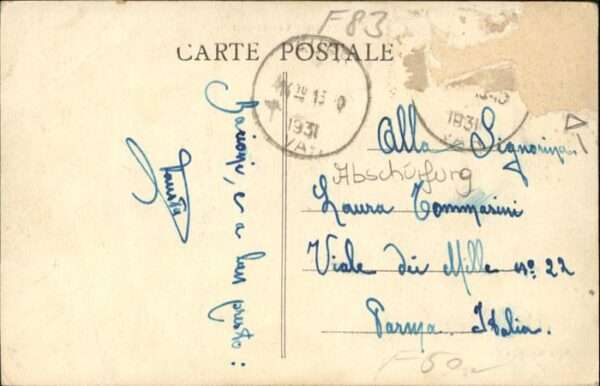 F83
CARTE POSTALE
1931
1931
Alla Signorina
Abschürfung
Laura Tommasini
Viale dei Mille nº 22
Parma. Italia.
F60
Bacioni, e a ben presto:
Fausta